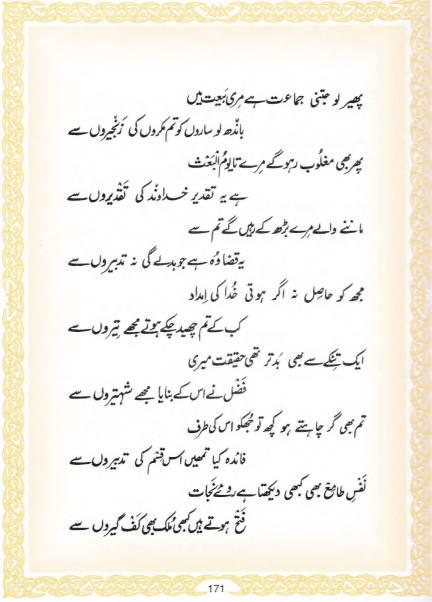 پھیر لو جتنی جماعت ہے مِری بَیعت میں
باندھ لو ساروں کو تم مکروں کی زَنجیروں سے
پھر بھی مغلُوب رہو گے مِرے تا یومُ الْبَعْث
ہے یہ تقدیر خداوند کی تقدیروں سے
ماننے والے مِرے بڑھ کے رہیں گے تم سے
یہ قضا وُہ ہے جو بدلے گی نہ تدبیروں سے
مجھ کو حاصِل نہ اگر ہوتی خُدا کی اِمداد
کب کے تم چھید چکے ہوتے مجھے تِیروں سے
ایک تِنکے سے بھی بَدتر تھی حقیقت میری
فَضل نے اس کے بنایا مجھے شہتیروں سے
تم بھی گر چاہتے ہو کچھ تو جُھکو اس کی طرف
فائدہ کیا تمھیں اس قِسْم کی تدبیروں سے
نَفْسِ طامِع بھی کبھی دیکھتا ہے رُوئے نَجات
فَتْح ہوتے ہیں کبھی مُلک بھی کَف گیروں سے
171